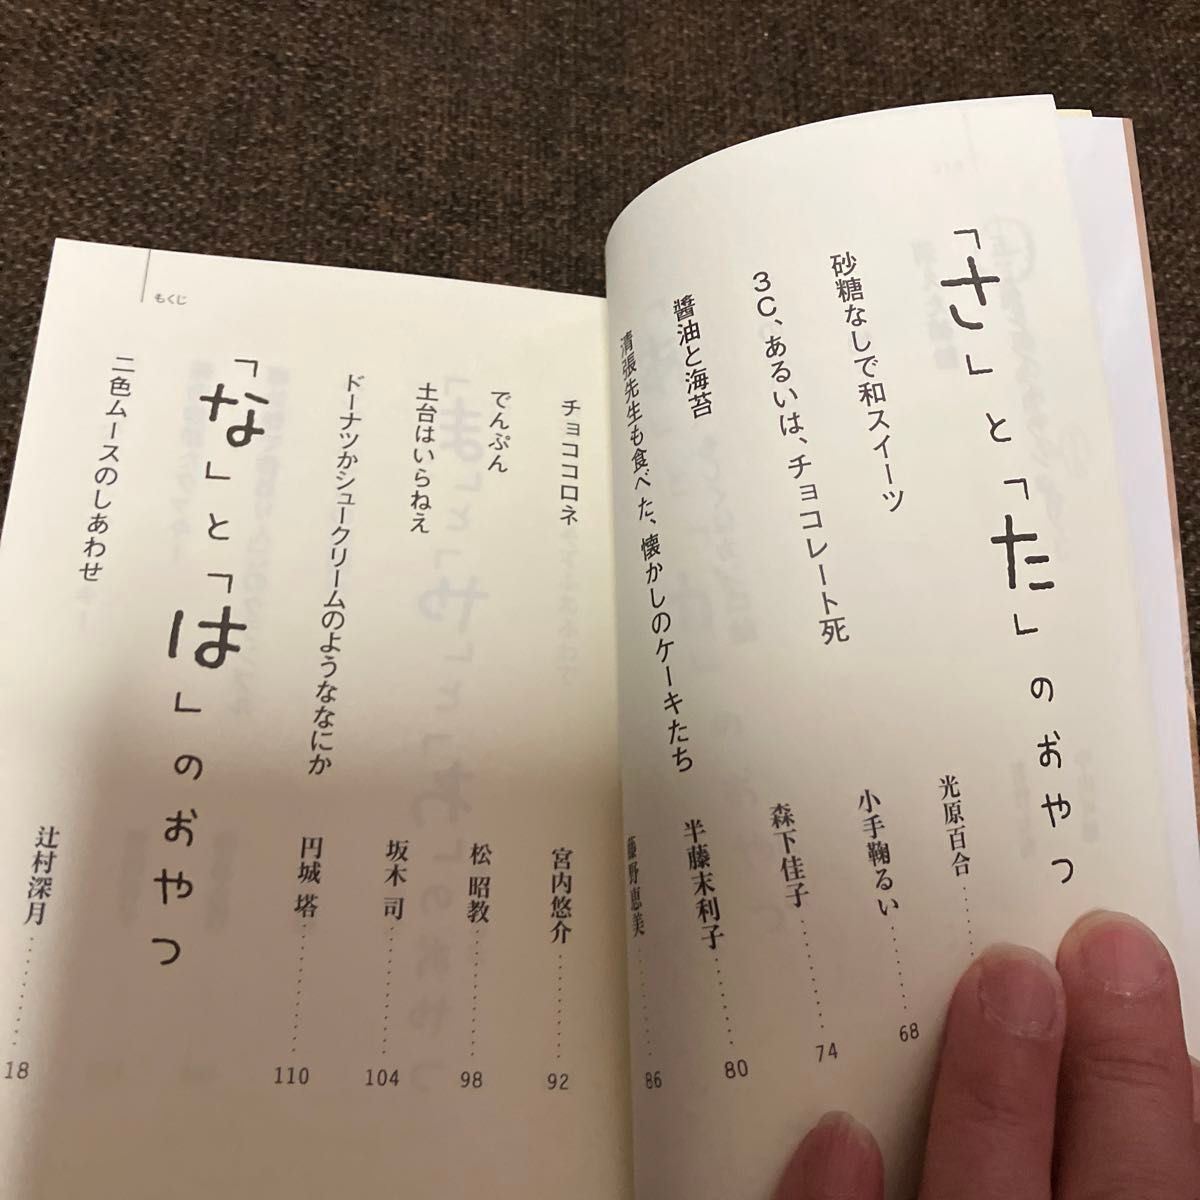 「さ」と「た」のおやつ
砂糖なしで和スイーツ 光原百合……
3C、あるいは、チョコレート死 小手鞠るい…… 68
醬油と海苔 森下佳子…… 74
清張先生も食べた、懐かしのケーキたち 半藤末利子…… 80
藤野恵美…… 86
チョココロネ 宮内悠介…… 92
でんぷん 松 昭教…… 98
土台はいらねえ 坂木 司…… 104
ドーナツかシュークリームのようななにか 円城 塔…… 110
「な」と「は」のおやつ
二色ムースのしあわせ 辻村深月…… 18
もくじ